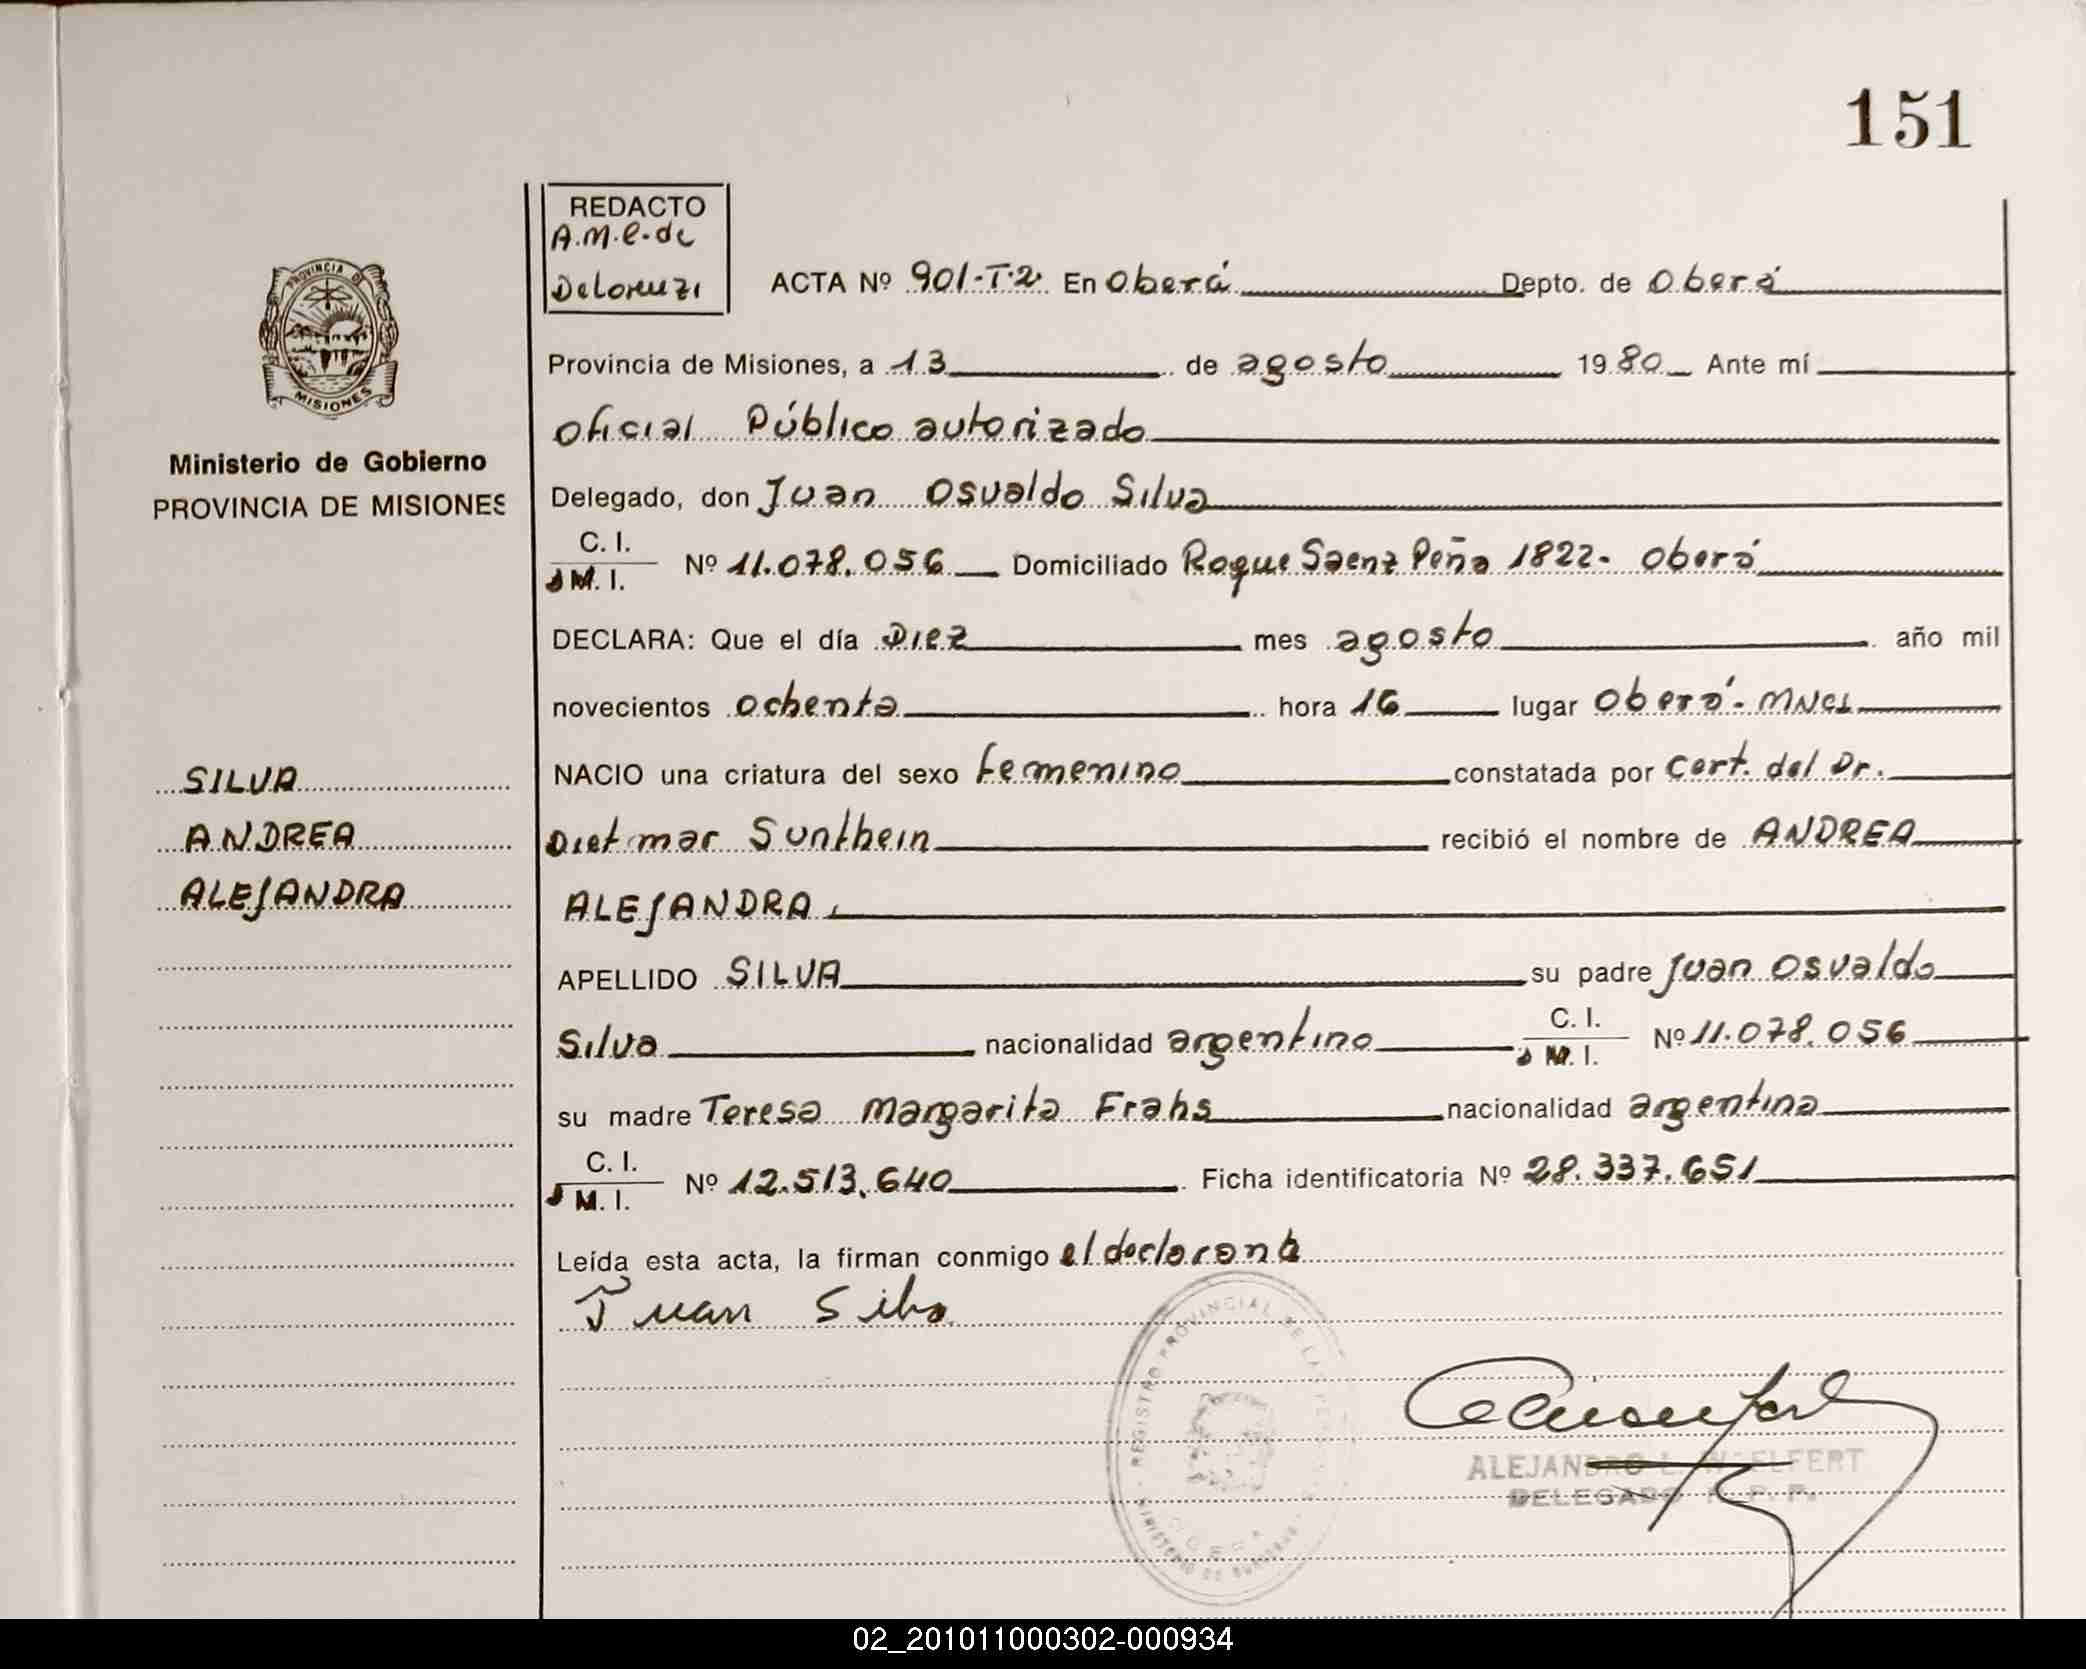 151
REDACTO
A.M.E. de
DeLorenzi
ACTA Nº 901-T.2. En Oberá Depto. de Oberá
Provincia de Misiones, a 13 de agosto 1980 Ante mí
oficial Público autorizado
Delegado, don Juan Osvaldo Silva
C. I.
M. I. Nº 11.078.056 Domiciliado Roque Saenz Peña 1822- Oberá
DECLARA: Que el día Diez mes agosto año mil
novecientos ochenta hora 16 lugar Oberá - MNES
NACIO una criatura del sexo femenino constatada por Cert. del Dr.
Dietmar Sunthein recibió el nombre de ANDREA
ALEJANDRA
APELLIDO SILVA su padre Juan Osvaldo
Silva nacionalidad argentino C. I.
M. I. Nº 11.078.056
su madre Teresa Margarita Frahs nacionalidad argentina
C. I.
M. I. Nº 12.513.640 Ficha identificatoria Nº 28.337.651
Leída esta acta, la firman conmigo el declarante
Juan Silva
ALEJANDRO L. WELFERT
DELEGADO R. P. P.
REGISTRO PROVINCIAL DE LAS
MINISTERIO DE GOBIERNO
OBERA
PROVINCIA DE
MISIONES
Ministerio de Gobierno
PROVINCIA DE MISIONES
SILVA
ANDREA
ALEJANDRA
02_201011000302-000934